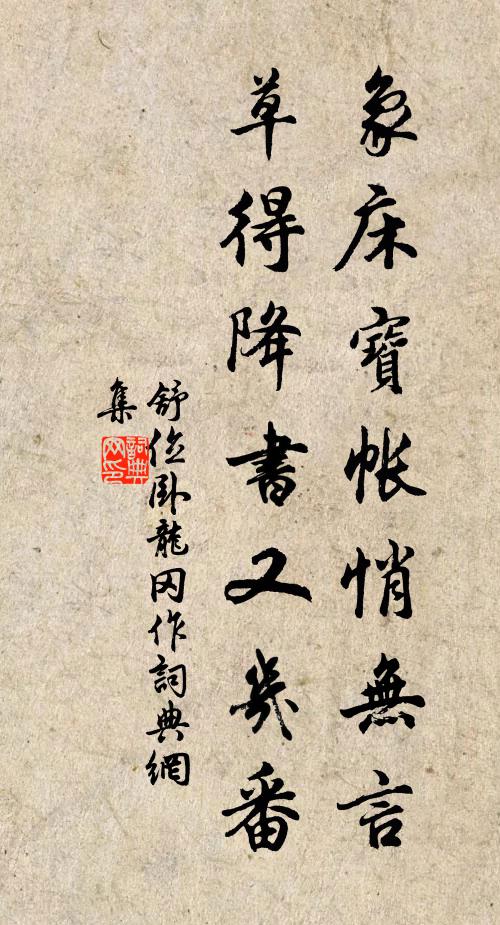 象床寶帳悄無言
草得降書又幾番
舒位卧龍冈作詞典網
集
詞典網印